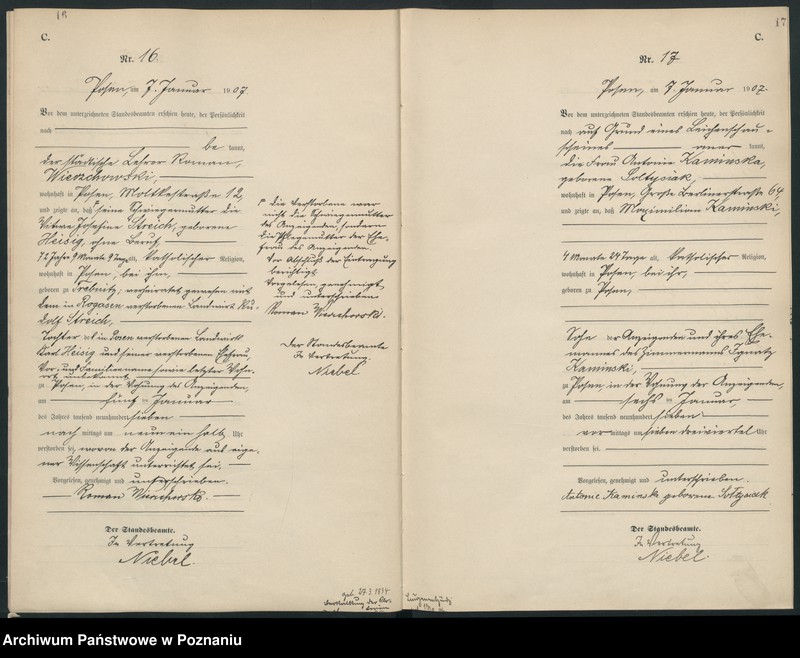 16
C.
Nr. 16
Posen, am 7. Januar 1907.
Vor dem unterzeichneten Standesbeamten erschien heute, der Persönlichkeit
nach
be kannt,
der städtische Lehrer Roman
Wierzchowski,
wohnhaft in Posen, Moltkestraße 12,
und zeigte an, daß seine Schwiegermutter die
Witwe Josefine Streich, geborene
Heisig, ohne Beruf,
72 Jahre 9 Monate 9 Tage alt, katholischer Religion,
wohnhaft in Posen, bei ihm,
geboren zu Trebnitz, verheiratet gewesen mit
dem in Rogasen verstorbenen Landwirt Ru-
dolf Streich,
Tochter des in Posen verstorbenen Landwirts
Karl Heisig und seiner verstorbenen Ehefrau,
Vor- und Familienname sowie letzter Wohn-
ort unbekannt
zu Posen, in der Wohnung des Anzeigenden,
am fünf ten Januar
des Jahres tausend neunhundert sieben
nach mittags um neun ein halb Uhr
verstorben sei, wovon der Anzeigende aus eige-
ner Wissenschaft unterrichtet sei.
Vorgelesen, genehmigt und unterschrieben.
Roman Wierzchowski.
Der Standesbeamte.
In Vertretung
Niebel.
die Verstorbene war
nicht die Schwiegermutter
des Anzeigenden, sondern
die Pflegemutter der Ehe-
frau des Anzeigenden.
Vor Abschluß der Eintragung
berichtigt.
Vorgelesen, genehmigt
und unterschrieben
Roman Wierzchowski.
Der Standesbeamte
In Vertretung.
Niebel
geb. 27.3.1834
17
C.
Nr. 17
Posen, am 7. Januar 1907.
Vor dem unterzeichneten Standesbeamten erschien heute, der Persönlichkeit
nach auf Grund eines Leichenschau-
scheines aner kannt,
die Frau Antonie Kaminska,
geborene Soltysiak,
wohnhaft in Posen, Große Berlinerstraße 64
und zeigte an, daß Maximilian Kaminski,
4 Monate 27 Tage alt, katholischer Religion,
wohnhaft in Posen, bei ihr,
geboren zu Posen,
Sohn der Anzeigenden und ihres Ehe-
mannes des Zimmermanns Ignatz
Kaminski,
zu Posen, in der Wohnung der Anzeigenden,
am sechs ten Januar,
des Jahres tausend neunhundert sieben
vor mittags um sieben dreiviertel Uhr
verstorben sei.
Vorgelesen, genehmigt und unterschrieben.
Antonie Kaminska geborene Sołtysiak
Der Standesbeamte.
In Vertretung
Niebel.
Archiwum Państwowe w Poznaniu